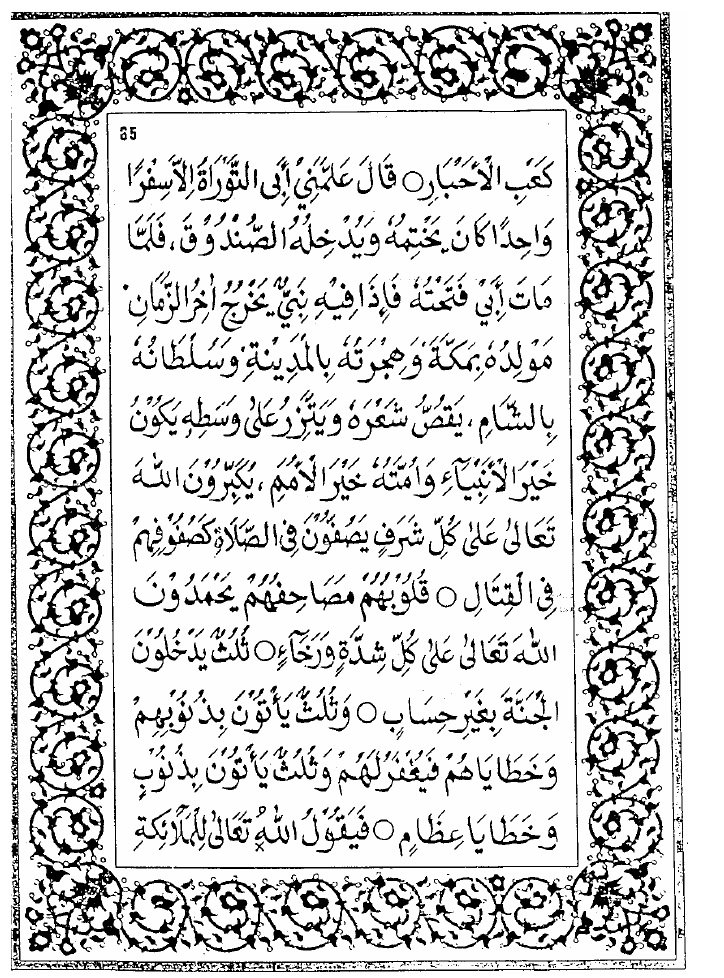 35
كَعْبِ الْاَحْبَارِ ○ قَالَ عَلَّمَنِيْ أَبِى التَّوْرَاةَ اِلَّا سِفْرًا
وَاحِدًا كَانَ يَخْتِمُهٗ وَيُدْخِلُهُ الصُّنْدُوْقَ، فَلَمَّا
مَاتَ أَبِيْ فَتَحْتُهٗ فَاِذَا فِيْهِ نَبِيٌّ يَخْرُجُ اٰخِرُ الزَّمَانِ
مَوْلِدُهٗ بِمَكَّةَ وَهِجْرَتُهٗ بِالْمَدِيْنَةِ وَسُلْطَانُهٗ
بِالشَّامِ، يَقُصُّ شَعْرَهٗ وَيَتَّزِرُ عَلٰى وَسَطِهٖ يَكُوْنُ
خَيْرَ الْاَنْبِيَآءِ وَاُمَّتُهٗ خَيْرَ الْاُمَمِ، يُكَبِّرُوْنَ اللهَ
تَعَالٰى عَلٰى كُلِّ شَرَفٍ يَصُفُّوْنَ فِى الصَّلَاةِ كَصُفُوْفِهِمْ
فِى الْقِتَالِ ○ قُلُوْبُهُمْ مَصَاحِفُهُمْ يَحْمَدُوْنَ
اللهَ تَعَالٰى عَلٰى كُلِّ شِدَّةٍ وَرَخَآءٍ ○ ثُلُثٌ يَدْخُلُوْنَ
الْجَنَّةَ بِغَيْرِ حِسَابٍ ○ وَثُلُثٌ يَأْتُوْنَ بِذُنُوْبِهِمْ
وَخَطَايَاهُمْ فَيُغْفَرُ لَهُمْ وَثُلُثٌ يَأْتُوْنَ بِذُنُوْبٍ
وَخَطَايَا عِظَامٍ ○ فَيَقُوْلُ اللهُ تَعَالٰى لِلْمَلَآئِكَةِ